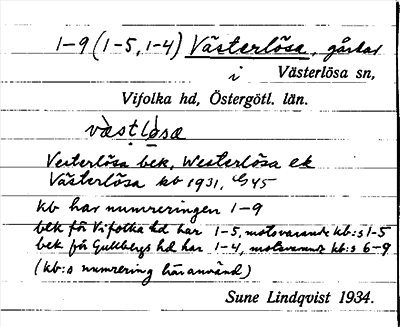 1-9 (1-5, 1-4) Västerlösa, gårdar
i Västerlösa sn,
Vifolka hd, Östergötl. län.
væ̀stlọsæ
Vesterlösa bek, Westerlösa ek
Västerlösa kb 1931, G45
kb har numreringen 1-9
bek för Vifolka hd har 1-5, motsvarande kb:s 1-5
bek för Gullbergs hd har 1-4, motsvarande kb:s 6-9
(kb:s numrering här använd)
Sune Lindqvist 1934.